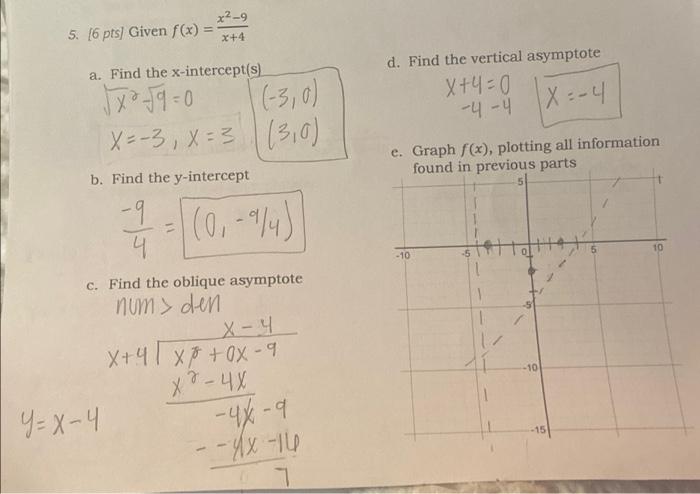 5. [6 pts] Given f(x) = x²-9 / x+4
a. Find the x-intercept(s)
√x² -√9 = 0
(-3,0)
X=-3, X=3
(3,0)
b. Find the y-intercept
-9/4 = (0, -9/4)
c. Find the oblique asymptote
num > den
x-4
x+4 | x² + 0x - 9
x² - 4x
-4x - 9
- -4x -16
7
y = x-4
d. Find the vertical asymptote
x+4=0
-4 -4
x=-4
e. Graph f(x), plotting all information
found in previous parts
5
-10 -5 0 5 10
-5
-10
-15